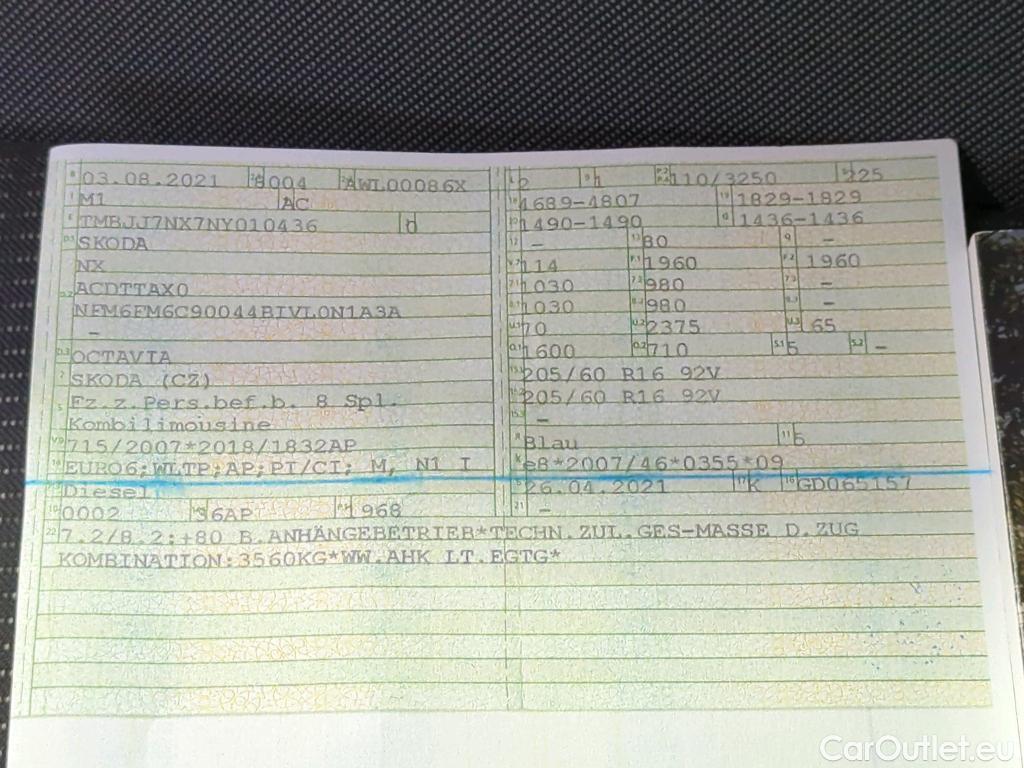 03.08.2021 8004 AWL00086X
M1 AC
TMBJJ7NX7NY010436 0
SKODA
NX
ACDTTAX0
NFM6FM6C90044BIVL0N1A3A
-
OCTAVIA
SKODA (CZ)
Fz.z.Pers.bef.b. 8 Spl.
Kombilimousine
715/2007*2018/1832AP
EURO6;WLTP;AP;PI/CI; M, N1 I
Diesel
0002 36AP 1968
2 1 110/3250 225
4689-4807 1829-1829
1490-1490 1436-1436
- 80 -
114 1960 1960
1030 980 -
1030 980 -
70 2375 65
1600 710 5 -
205/60 R16 92V
205/60 R16 92V
-
Blau 5
e8*2007/46*0355*09
26.04.2021 K GD065157
-
7.2/8.2:+80 B.ANHÄNGEBETRIEB*TECHN.ZUL.GES-MASSE D.ZUG
KOMBINATION:3560KG*WW.AHK LT.EGTG*
CarOutlet.eu